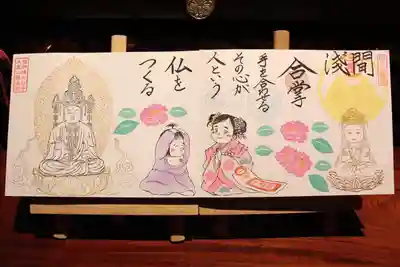 淺間
合掌
手を合せる
その心が
人という
仏を
つくる